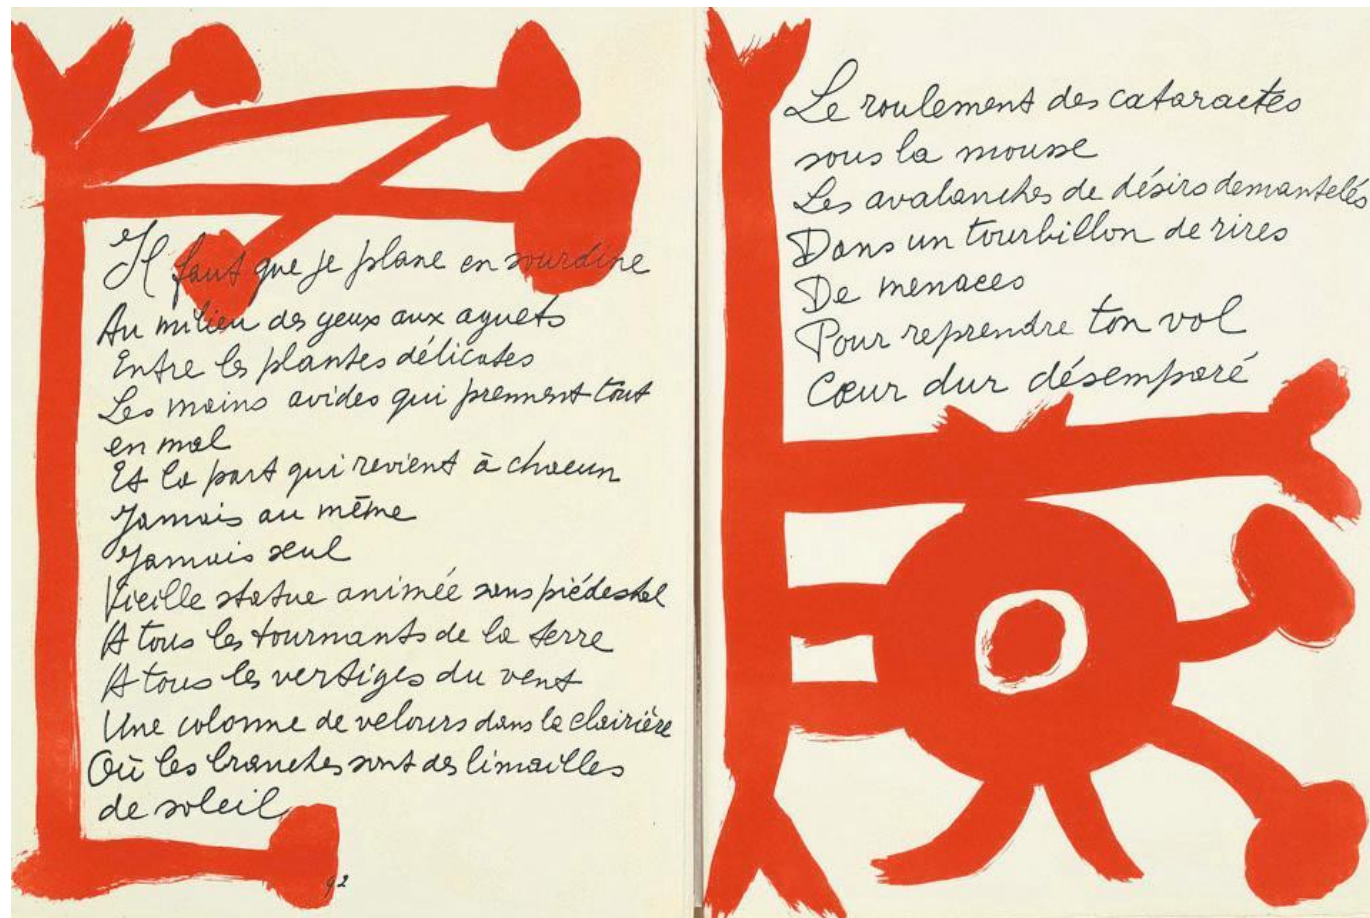 Il faut que je plane en sourdine
Au milieu des yeux aux aguets
Entre les plantes délicates
Les mains avides qui prennent tout
en mal
Et la part qui revient à chacun
Jamais au même
Jamais seul
Vieille statue animée sans piédestal
A tous les tournants de la terre
A tous les vertiges du vent
Une colonne de velours dans la clairière
Où les branches sont des limailles
de soleil
92
Le roulement des cataractes
sous la mousse
Les avalanches de désirs demantelés
Dans un tourbillon de rires
De menaces
Pour reprendre ton vol
Cœur dur désemparé